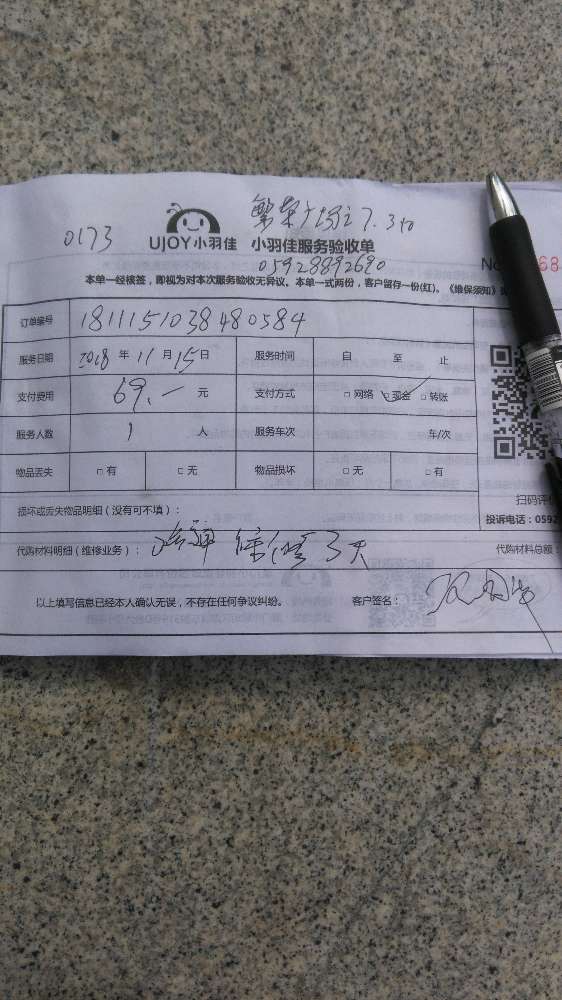 繁荣广场
7.30
0173
UJOY小羽佳 小羽佳服务验收单
05928892690
No 68
本单一经核签，即视为对本次服务验收无异议。本单一式两份，客户留存一份(红)。《维保须知》
订单编号 1811151038480584
服务日期 2018 年 11 月 15 日 服务时间 自 至 止
支付费用 69.一 元 支付方式 □ 网络 ☑ 现金 □ 转账
服务人数 1 人 服务车次 车/次
物品丢失 □ 有 □ 无 物品损坏 □ 无 □ 有
扫码评
损坏或丢失物品明细（没有可不填）：
投诉电话：0592
代购材料明细（维修业务）： 保修3天 代购材料总额：
以上填写信息已经本人确认无误，不存在任何争议纠纷。 客户签名：